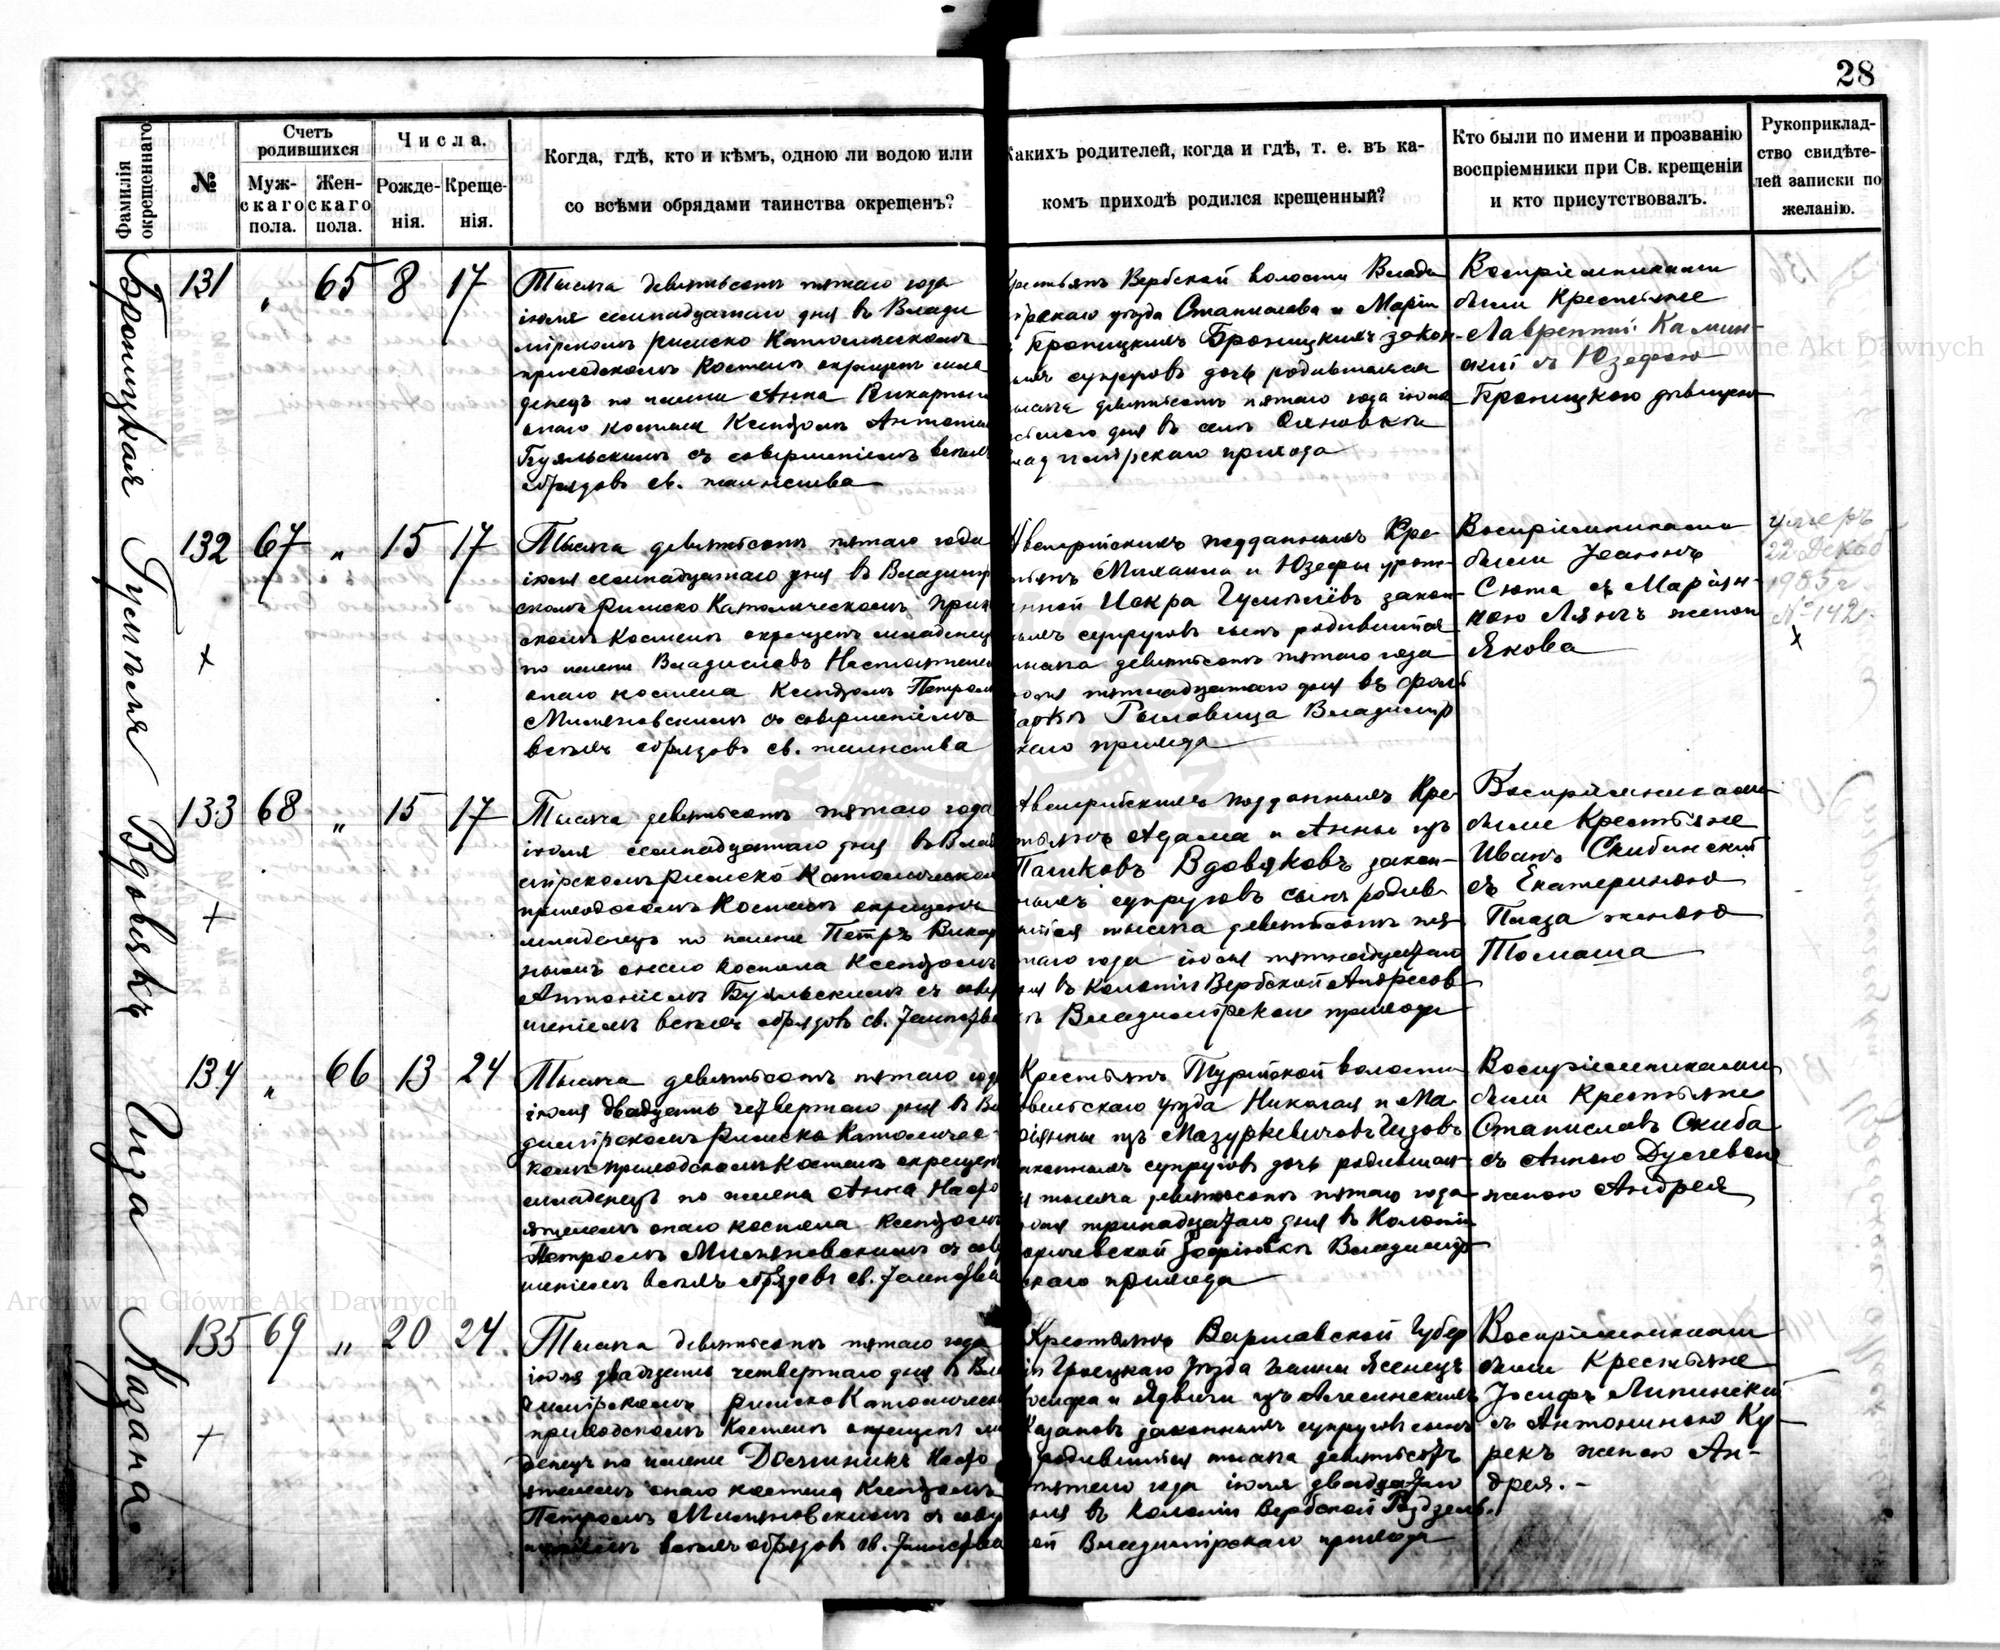 28
Фамилія окрещеннаго.
№
Счетъ родившихся
Муж-
скаго
пола.
Жен-
скаго
пола.
Числа.
Рожде-
нія.
Креще-
нія.
Когда, гдѣ, кто и кѣмъ, одною ли водою или
со всѣми обрядами таинства окрещенъ?
Какихъ родителей, когда и гдѣ, т. е. въ ка-
комъ приходѣ родился крещенный?
Кто были по имени и прозванію
воспріемники при Св. крещеніи
и кто присутствовалъ.
Рукоприклад-
ство свидѣте-
лей записки по
желанію.
Броницкая
131 „ 65 8 17
Тысяча девятьсотъ пятаго года
іюля семнадцатаго дня въ Влади
мірскомъ Римско Католическомъ
приходскомъ Костелѣ окрещенъ мла
денецъ по имени Анна Викарнымъ
онаго костела Ксендзомъ Антоніемъ
Буяльскимъ съ совершеніемъ всѣхъ
обрядовъ св. таинства
Крестьянъ Вербской волости Влади
мірскаго уѣзда Станислава и Маріи
Броницкихъ закон-
ныхъ супруговъ дочь родившаяся
тысяча девятьсотъ пятаго года іюля
восьмого дня въ селѣ
Владимірскаго прихода
Воспріемниками
были Крестьяне
Лаврентій Камин-
скій съ Юзефою
Броницкою дѣвицею
132 67 „ 15 17
Тысяча девятьсотъ пятаго года
іюля семнадцатаго дня въ Владимір
скомъ Римско Католическомъ прих
скомъ Костелѣ окрещенъ младенец
по имени Владиславъ Настоятелем
онаго костела Ксендзомъ Петромъ
съ совершеніемъ
всѣхъ обрядовъ св. таинства
Австрійскихъ подданныхъ Кре-
стьянъ Михаила и Юзефы урож-
денной Искра закон-
ныхъ супруговъ сынъ родившійся
тысяча девятьсотъ пятаго года
іюля пятнадцатаго дня въ фоль
варкѣ Владимір
скаго прихода
Воспріемниками
были Іоаннъ
Сюта съ Маріян-
ною женою
Якова
умеръ
22 Декаб
1905 г.
№ 142
х
133 68 „ 15 17
Вдовякъ
Тысяча девятьсотъ пятаго года
іюля семнадцатаго дня въ Влад
мірскомъ Римско Католическом
приходскомъ Костелѣ окрещенъ
младенецъ по имени Петръ Викар
нымъ онаго костела Ксендзомъ
Антоніемъ Буяльскимъ съ совер
шеніемъ всѣхъ обрядовъ св. Таинства
Австрійскихъ подданныхъ Кре-
стьянъ Адама и Анны изъ
Пашковъ Вдовяковъ закон-
ныхъ супруговъ сынъ родив-
шійся тысяча девятьсотъ пя-
таго года іюля пятнадцатаго
дня въ Колоніи Вербской Андресов
кѣ Владимірскаго прихода
Воспріемниками
были Крестьяне
Иванъ Скибинскій
съ Екатериною
Плаза женою
Томаша
134 „ 66 13 24
Гиза
Тысяча девятьсотъ пятаго года
іюля двадцать четвертаго дня въ Вла
димірскомъ Римско Католичес-
комъ приходскомъ Костелѣ окрещенъ
младенецъ по имени Анна Насто
ятелемъ онаго костела Ксендзомъ
Петромъ съ совер
шеніемъ всѣхъ обрядовъ св. Таинства
Крестьянъ Турійской волости
Ковельскаго уѣзда Николая и Ма-
ріянны изъ Мазуркевичовъ Гизовъ
законныхъ супруговъ дочь родившая
ся тысяча девятьсотъ пятаго года
іюля тринадцатаго дня въ Колоніи
Зофіовкѣ Владимір
скаго прихода
Воспріемниками
были Крестьяне
Станиславъ Скиба
съ Анною
женою Андрея
135 69 „ 20 24
Казана
Тысяча девятьсотъ пятаго года
іюля двадцать четвертаго дня въ Вла
димірскомъ Римско Католическ
приходскомъ Костелѣ окрещенъ мла
денецъ по имени Доминикъ Насто
ятелемъ онаго костела Ксендзомъ
Петромъ съ совер
шеніемъ всѣхъ обрядовъ св. Таинства
Крестьянъ Варшавской Губер
ніи Гроецкаго Уѣзда гмины Ясенецъ
Іосифа и Ядвиги изъ
Казановъ законныхъ супруговъ сынъ
родившійся тысяча девятьсотъ
пятаго года іюля двадцатаго
дня въ Колоніи Вербской
Владимірскаго прихода
Воспріемниками
были Крестьяне
Іосифъ Липинскій
съ Антониною Ку-
рекъ женою Ан-
дрея.
Archiwum Główne Akt Dawnych
Archiwum Główne Akt Dawnych